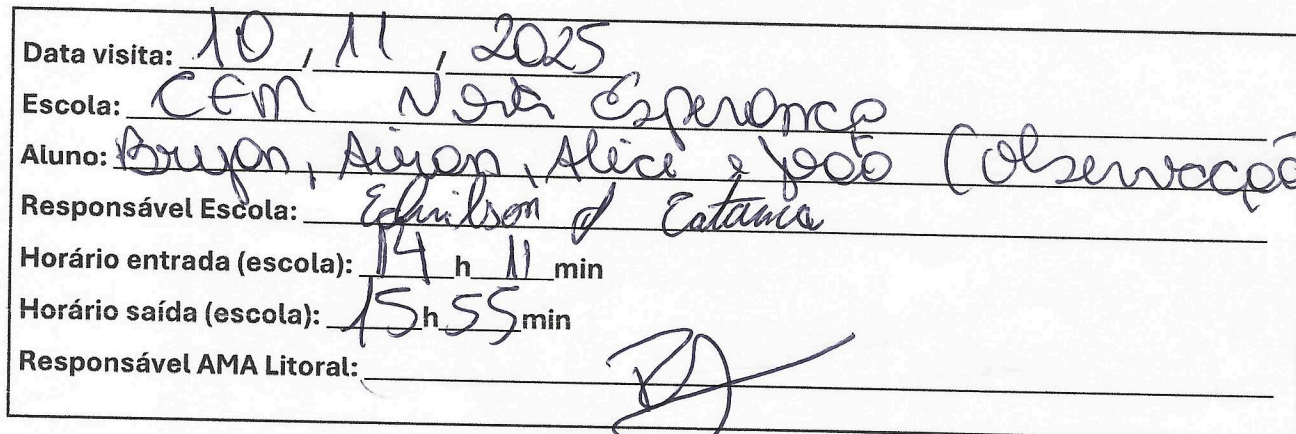 Data visita: 10 / 11 / 2025
Escola: CEM Nova Esperança
Aluno: Bryan, Airon, Alice e João (Observação
Responsável Escola: Ednilson d Catania
Horário entrada (escola): 14 h 11 min
Horário saída (escola): 15 h 55 min
Responsável AMA Litoral: